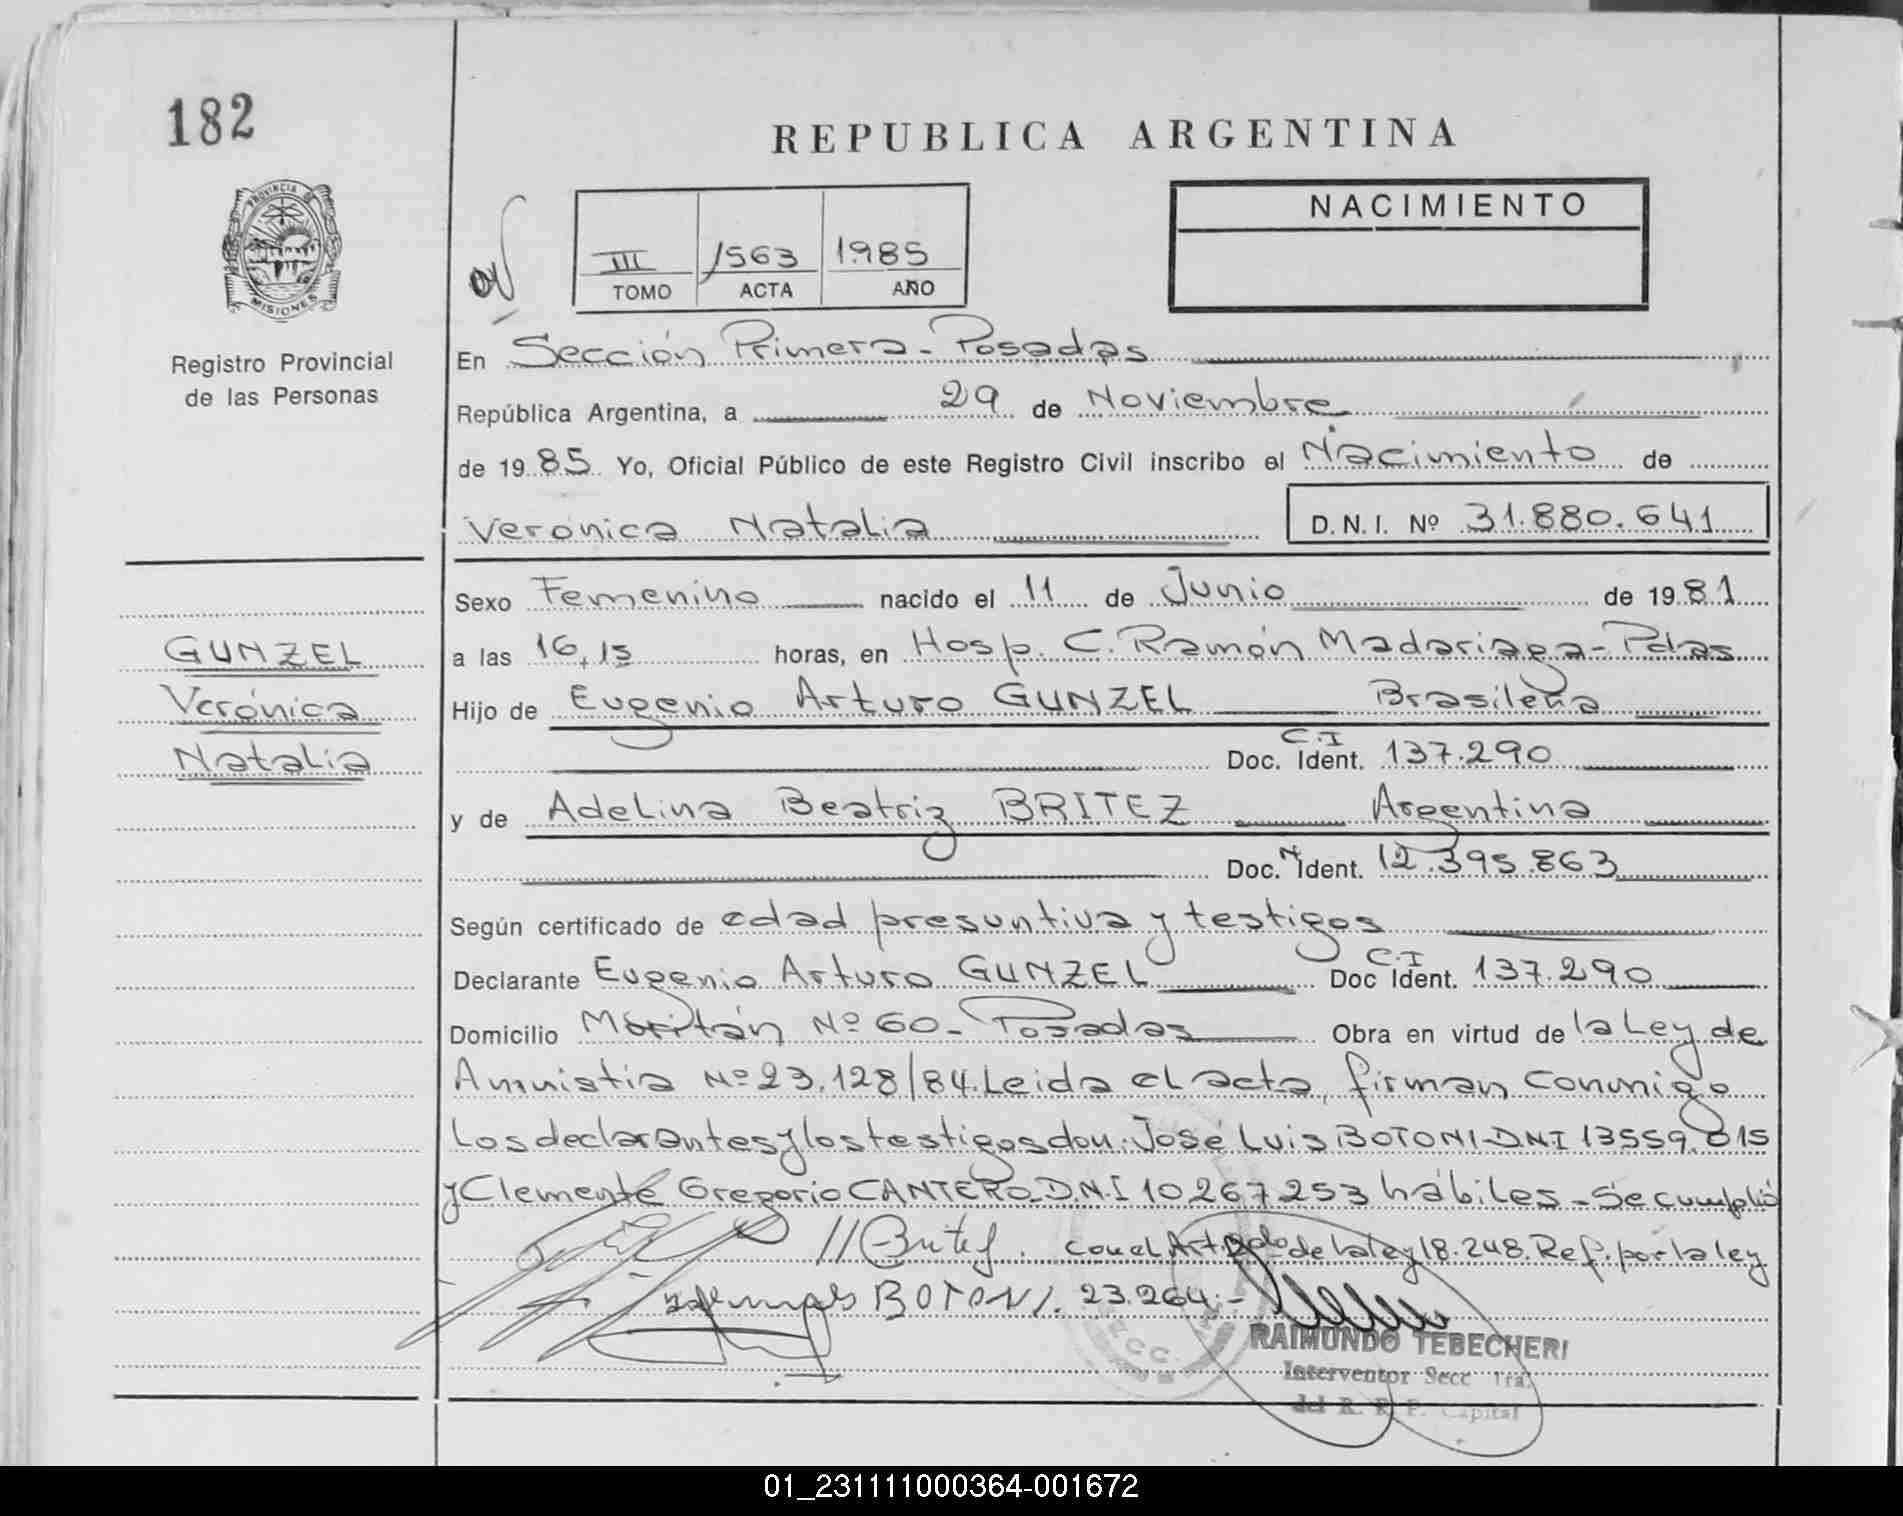 182
REPUBLICA ARGENTINA
PROVINCIA DE
MISIONES
III 1563 1.985
TOMO ACTA AÑO
NACIMIENTO
Registro Provincial
de las Personas
En Sección Primera - Posadas
República Argentina, a 29 de Noviembre
de 19 85 Yo, Oficial Público de este Registro Civil inscribo el Nacimiento de
Verónica Natalia D.N.I. Nº 31.880.641
Sexo Femenino nacido el 11 de Junio de 19 81
GUNZEL
a las 16,15 horas, en Hosp. C. Ramón Madariaga - Pdas
Verónica
Hijo de Eugenio Arturo GUNZEL Brasileña
Natalia
C.I
Doc. Ident. 137.290
y de Adelina Beatriz BRITEZ Argentina
Doc. N Ident. 12.395.863
Según certificado de edad presuntiva y testigos
C.I
Declarante Eugenio Arturo GUNZEL Doc Ident. 137.290
Domicilio Nº 60 - Posadas Obra en virtud de la Ley de
Amnistia Nº 23.128/84. Leida el acta, firman conmigo
los declarantes y los testigos don: José Luis BOTONI - DNI 13559.015
y Clemente Gregorio CANTERO - D.N.I 10.267.253 hábiles - Se cumplió
con el Art. 2do de la ley 18.248. Ref. por la ley
BOTONI. 23.264.-
SECC.
RAIMUNDO TEBECHERI
Interventor Secc 1ra.
del R. P. P. Capital
01_231111000364-001672